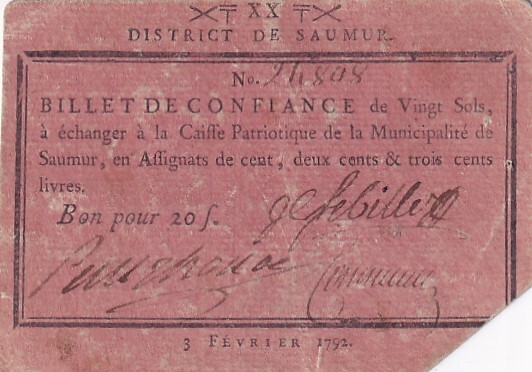 XX
DISTRICT DE SAUMUR.
No.
BILLET DE CONFIANCE de Vingt Sols,
à échanger à la Caiſſe Patriotique de la Municipalité de
Saumur, en Aſſignats de cent, deux cents & trois cents
livres.
Bon pour 20 ſ.
3 FÉVRIER 1792.